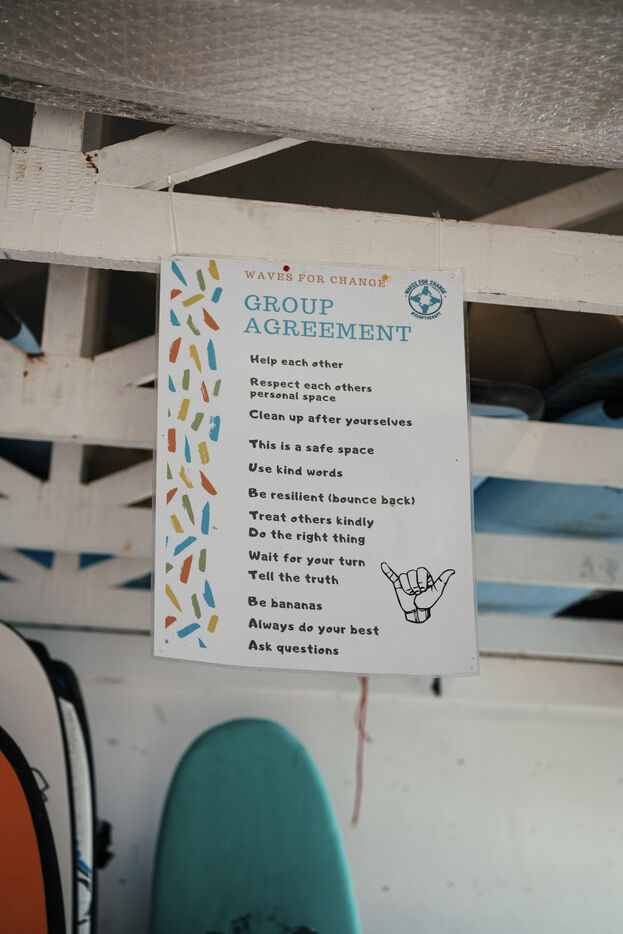 WAVES FOR CHANGE
WAVES FOR CHANGE
#SURFTHERAPY
GROUP
AGREEMENT
Help each other
Respect each others
personal space
Clean up after yourselves
This is a safe space
Use kind words
Be resilient (bounce back)
Treat others kindly
Do the right thing
Wait for your turn
Tell the truth
Be bananas
Always do your best
Ask questions